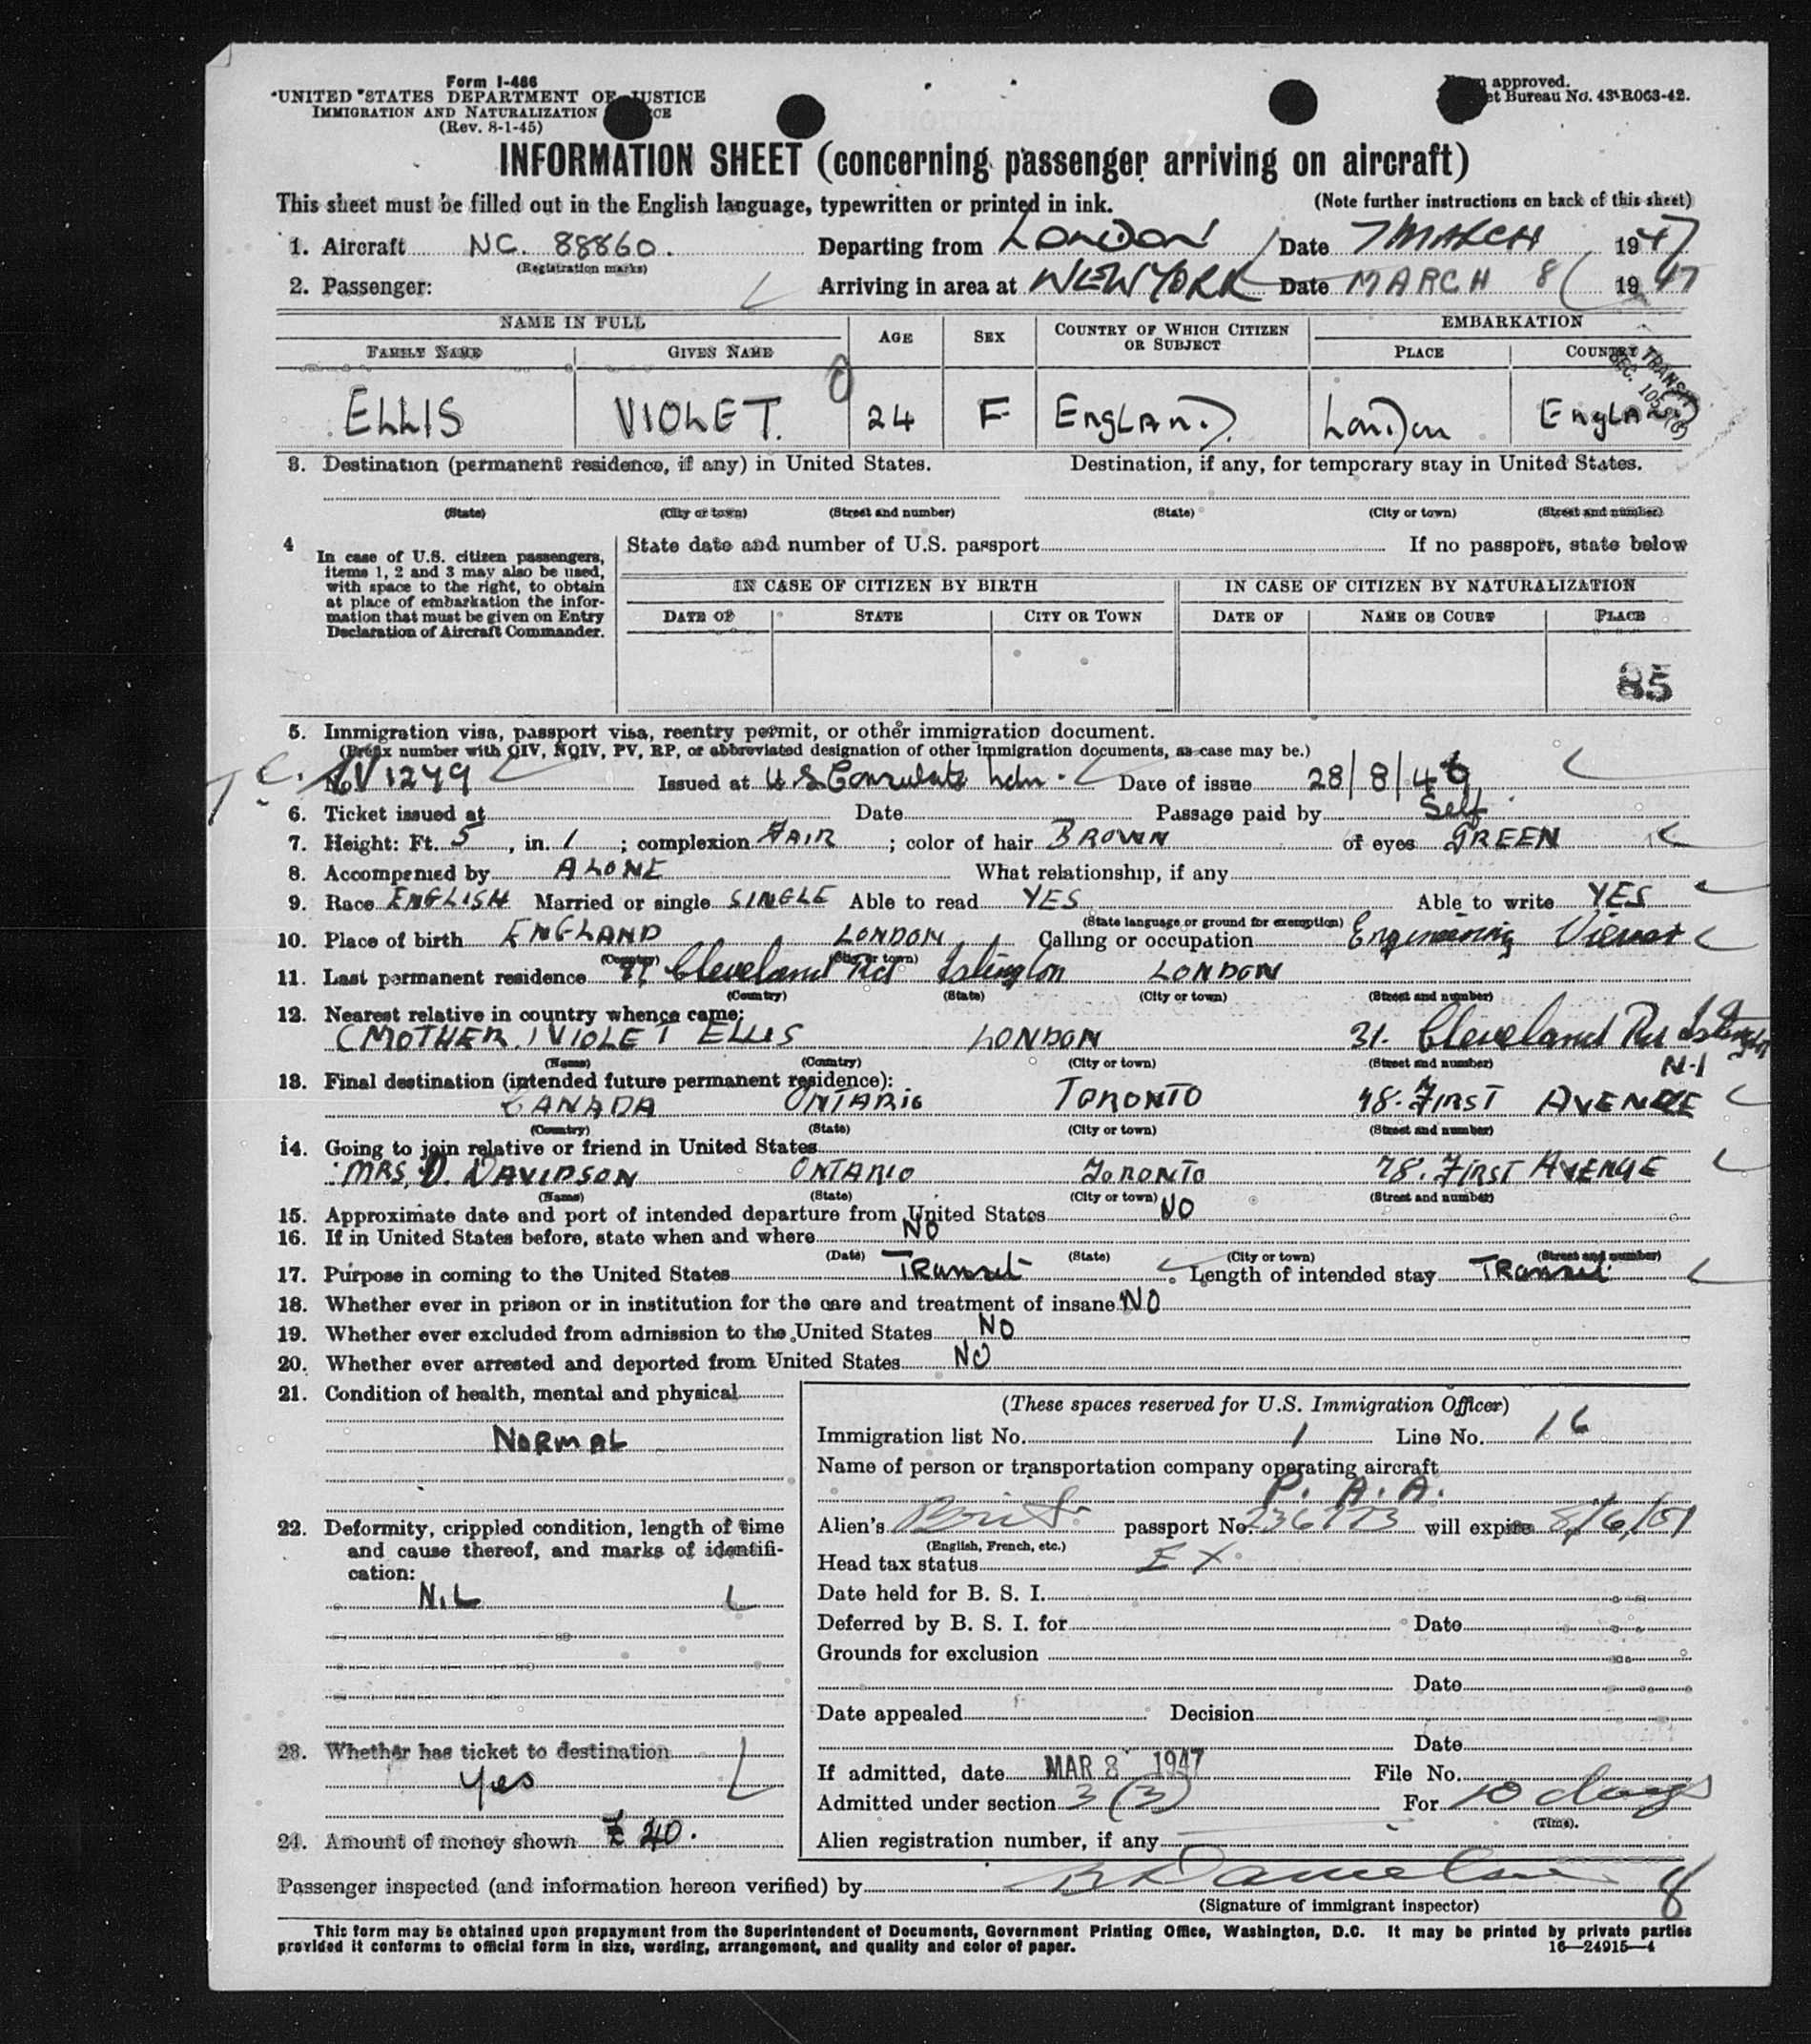 Form I-466
UNITED STATES DEPARTMENT OF JUSTICE
IMMIGRATION AND NATURALIZATION
(Rev. 8-1-45)
approved.
et Bureau No. 43-R063-42.
INFORMATION SHEET (concerning passenger arriving on aircraft)
This sheet must be filled out in the English language, typewritten or printed in ink. (Note further instructions on back of this sheet)
1. Aircraft NC. 88860. Departing from LONDON Date 7 MARCH 1947
(Registration marks)
2. Passenger: Arriving in area at NEW YORK Date MARCH 8 1947
NAME IN FULL AGE SEX COUNTRY OF WHICH CITIZEN OR SUBJECT EMBARKATION
FAMILY NAME GIVEN NAME PLACE COUNTRY
TRANSIT
ELLIS VIOLET. 24 F ENGLAND London ENGLAND
3. Destination (permanent residence, if any) in United States. Destination, if any, for temporary stay in United States.
(State) (City or town) (Street and number) (State) (City or town) (Street and number)
4 In case of U.S. citizen passengers, items 1, 2 and 3 may also be used, with space to the right, to obtain at place of embarkation the information that must be given on Entry Declaration of Aircraft Commander.
State date and number of U.S. passport If no passport, state below
IN CASE OF CITIZEN BY BIRTH IN CASE OF CITIZEN BY NATURALIZATION
DATE OF STATE CITY OR TOWN DATE OF NAME OF COURT PLACE
85
5. Immigration visa, passport visa, reentry permit, or other immigration document.
(Prefix number with QIV, NQIV, PV, RP, or abbreviated designation of other immigration documents, as case may be.)
No. V 1279 Issued at U S Consulate Ldn. Date of issue 28/8/46
6. Ticket issued at Date Passage paid by Self
7. Height: Ft. 5, in. 1; complexion FAIR; color of hair BROWN of eyes GREEN
8. Accompanied by ALONE What relationship, if any
9. Race ENGLISH Married or single SINGLE Able to read YES Able to write YES
(State language or ground for exemption)
10. Place of birth ENGLAND LONDON Calling or occupation Engineering Viewer
(Country) (City or town)
11. Last permanent residence Cleveland Rd Islington LONDON
(Country) (State) (City or town) (Street and number)
12. Nearest relative in country whence came:
(MOTHER.) VIOLET ELLIS LONDON 31. Cleveland Rd Islington
N-1
(Name) (Country) (City or town) (Street and number)
13. Final destination (intended future permanent residence):
CANADA ONTARIO TORONTO 78. FIRST AVENUE
(Country) (State) (City or town) (Street and number)
14. Going to join relative or friend in United States
MRS. D. DAVIDSON ONTARIO TORONTO 78. FIRST AVENUE
(Name) (State) (City or town) (Street and number)
15. Approximate date and port of intended departure from United States NO
16. If in United States before, state when and where NO
(Date) (State) (City or town) (Street and number)
17. Purpose in coming to the United States Transit Length of intended stay Transit
18. Whether ever in prison or in institution for the care and treatment of insane NO
19. Whether ever excluded from admission to the United States NO
20. Whether ever arrested and deported from United States NO
21. Condition of health, mental and physical
NORMAL
22. Deformity, crippled condition, length of time
and cause thereof, and marks of identifi-
cation:
NIL
23. Whether has ticket to destination
Yes
24. Amount of money shown £ 40.
(These spaces reserved for U.S. Immigration Officer)
Immigration list No. 1 Line No. 16
Name of person or transportation company operating aircraft
P. A. A.
Alien's Brit. passport No. 236773 will expire 8/6/51
(English, French, etc.)
Head tax status EX
Date held for B. S. I.
Deferred by B. S. I. for Date
Grounds for exclusion
Date
Date appealed Decision
Date
If admitted, date MAR 8 1947 File No.
Admitted under section 3 (3) For 10 days
(Time).
Alien registration number, if any
Passenger inspected (and information hereon verified) by
8
(Signature of immigrant inspector)
This form may be obtained upon prepayment from the Superintendent of Documents, Government Printing Office, Washington, D.C. It may be printed by private parties
provided it conforms to official form in size, wording, arrangement, and quality and color of paper. 16—24915-4